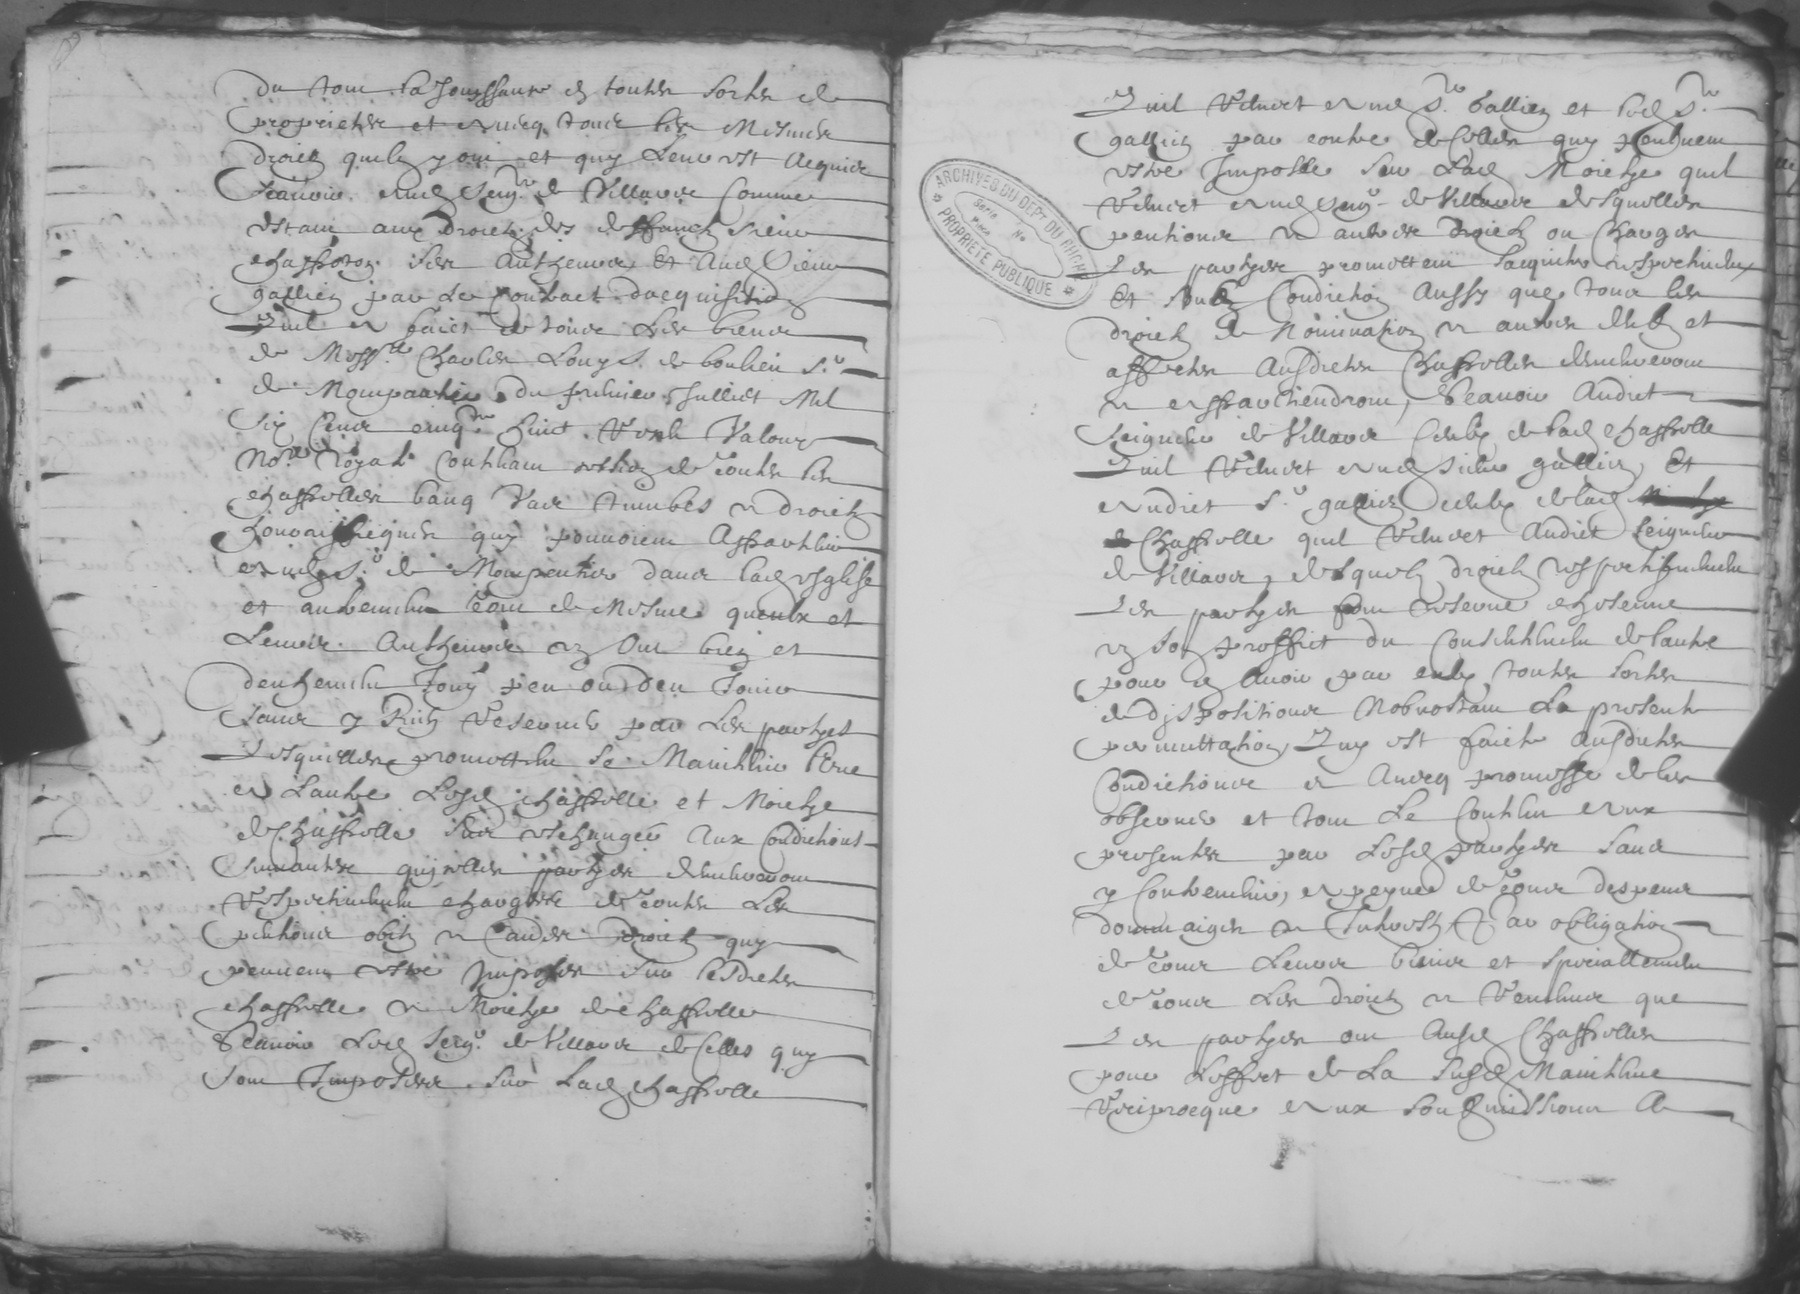 du tout la Jouyssance et touttes sortes de
proprietes et avecq tous les mesmes
droictz quilz y ont et quy leur est acquis
scavoir audict Seigr de Villars comme
estant aux droictz des deffunctz sieurs
chassotz ses autheurs Et audict sieur
gallien par le contract dacquisition
quil a faict de touts les biens
de Messre Charles Louys de boulieu Sr
de Monpantier du premier Juillict Mil
Six Cens cinqte huict Valour
Nore Royal contenant cession de toutes les
chappelles bancq Vas tumbes et droictz
honorifficques quy pouvoient Appartenir
audict Sr de Monpentier dans ladicte esglise
et autrement tout de mesme queulx et
Leurs Autheurs en ont bien et
deuhement Jouy peu ou deu Jouir
sans y Rien Reserver par les partyes
Lesquelles promettent se Maintenir lune
a Lautre Lesdictes chappelle et Moictye
de chappelle sus eschangees aux Condictions
suivantes quycelles partyes demeureront
Respectivement chargees de touttes Les
pentions obitz et autres droictz quy
peuvent estre Imposes sur lesdictes
chappelle et Moictye de chappelle
Scavoir Ledict Seigr de Villars de Celles quy
sont Imposees sur Ladicte chappelle
quil Remect audict Sr Gallien et ledict Sr
gallien par contre de celles quy peuvent
estre Imposees sur Ladicte Moictye quil
Remect audict Seigr de Villars desquelles
pentions et autres droictz ou charges
Les partyes promettent sacquitter respectivement
Et soubz Condiction Aussy que tous les
droictz de Nomination et autres deubz et
affectes Ausdictes Chappelles demeureront
et appartiendront, Scavoir Audict
Seigneur de Villars Ceulx de ladicte chappelle
quil Remect audict sieur gallien, Et
audict Sr gallien ceulx de ladicte
Chappelle quil Remect Audict Seigneur
de Villars, desquelz droictz respectivement
Les partyes font reserve chascune
a son proffict du Consentement de lautre
pour en Avoir par eulx touttes sortes
de dispositions Nobnostant La presente
permuttation, Quy est faicte Ausdictes
Condictions et Avecq promesse de les
observer et tout Le Contenu aux
presentes par Lesdictes partyes sans
y Contrevenir, a peyne de tous despens
dommaiges et Interestz Par obligation
de tous Leurs biens et speciallement
de tous Les droictz et Pretentions que
Les partyes ont Ausdictes Chappelles
pour Leffect de La Susdicte Maintenue
Reciprocque aux Soubzmissions A
ARCHIVES DU DEPT DU RHÔNE
Série
Nº
Pièce
PROPRIÉTÉ PUBLIQUE